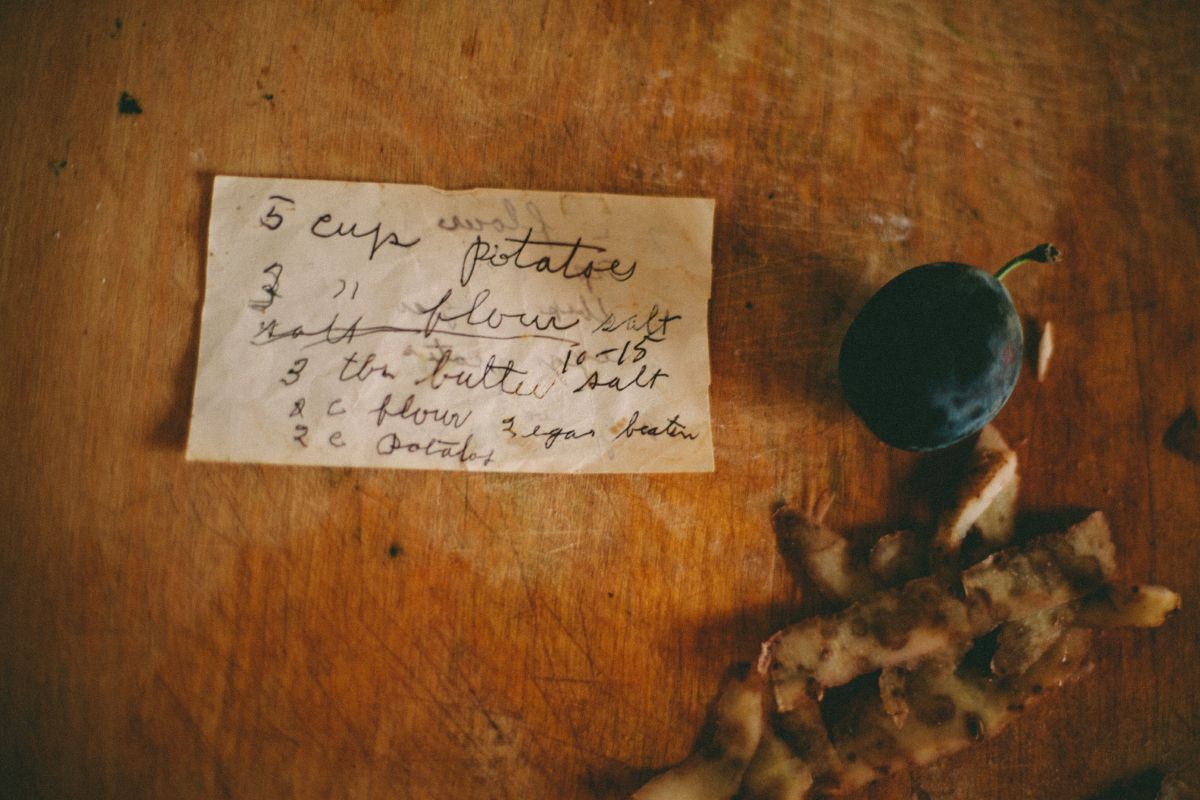 5 cup potatoes
3 " flour salt
salt
10-15
3 tbn butter salt
2 c flour 2 eggs beaten
2 c potatoes